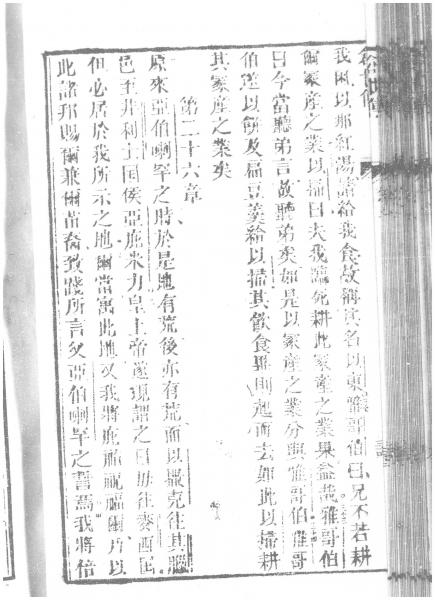 我困以那紅湯請給我食故稱其名以東雅哥伯曰兄不若耕
爾冢產之業以掃曰夫我臨死耕此冢產之業果益哉雅哥伯
曰今當聽弟言故聽弟矣如是以冢產之業分與雅哥伯雅哥
伯遂以餅及扁豆羹給以掃其飲食畢則起而去如此以掃耕
其冢產之業矣
第二十六章
原來亞伯喇罕之時於是地有荒後亦有荒而以撒克往其臘
邑至非利士国侯亞庇米力皇上帝遂現謂之曰毋往麥西国
但必居於我所示之地爾當寓此地又我將庇祐祝福爾乃以
此諸邦賜爾兼爾苗裔致踐所言父亞伯喇罕之誓焉我將倍